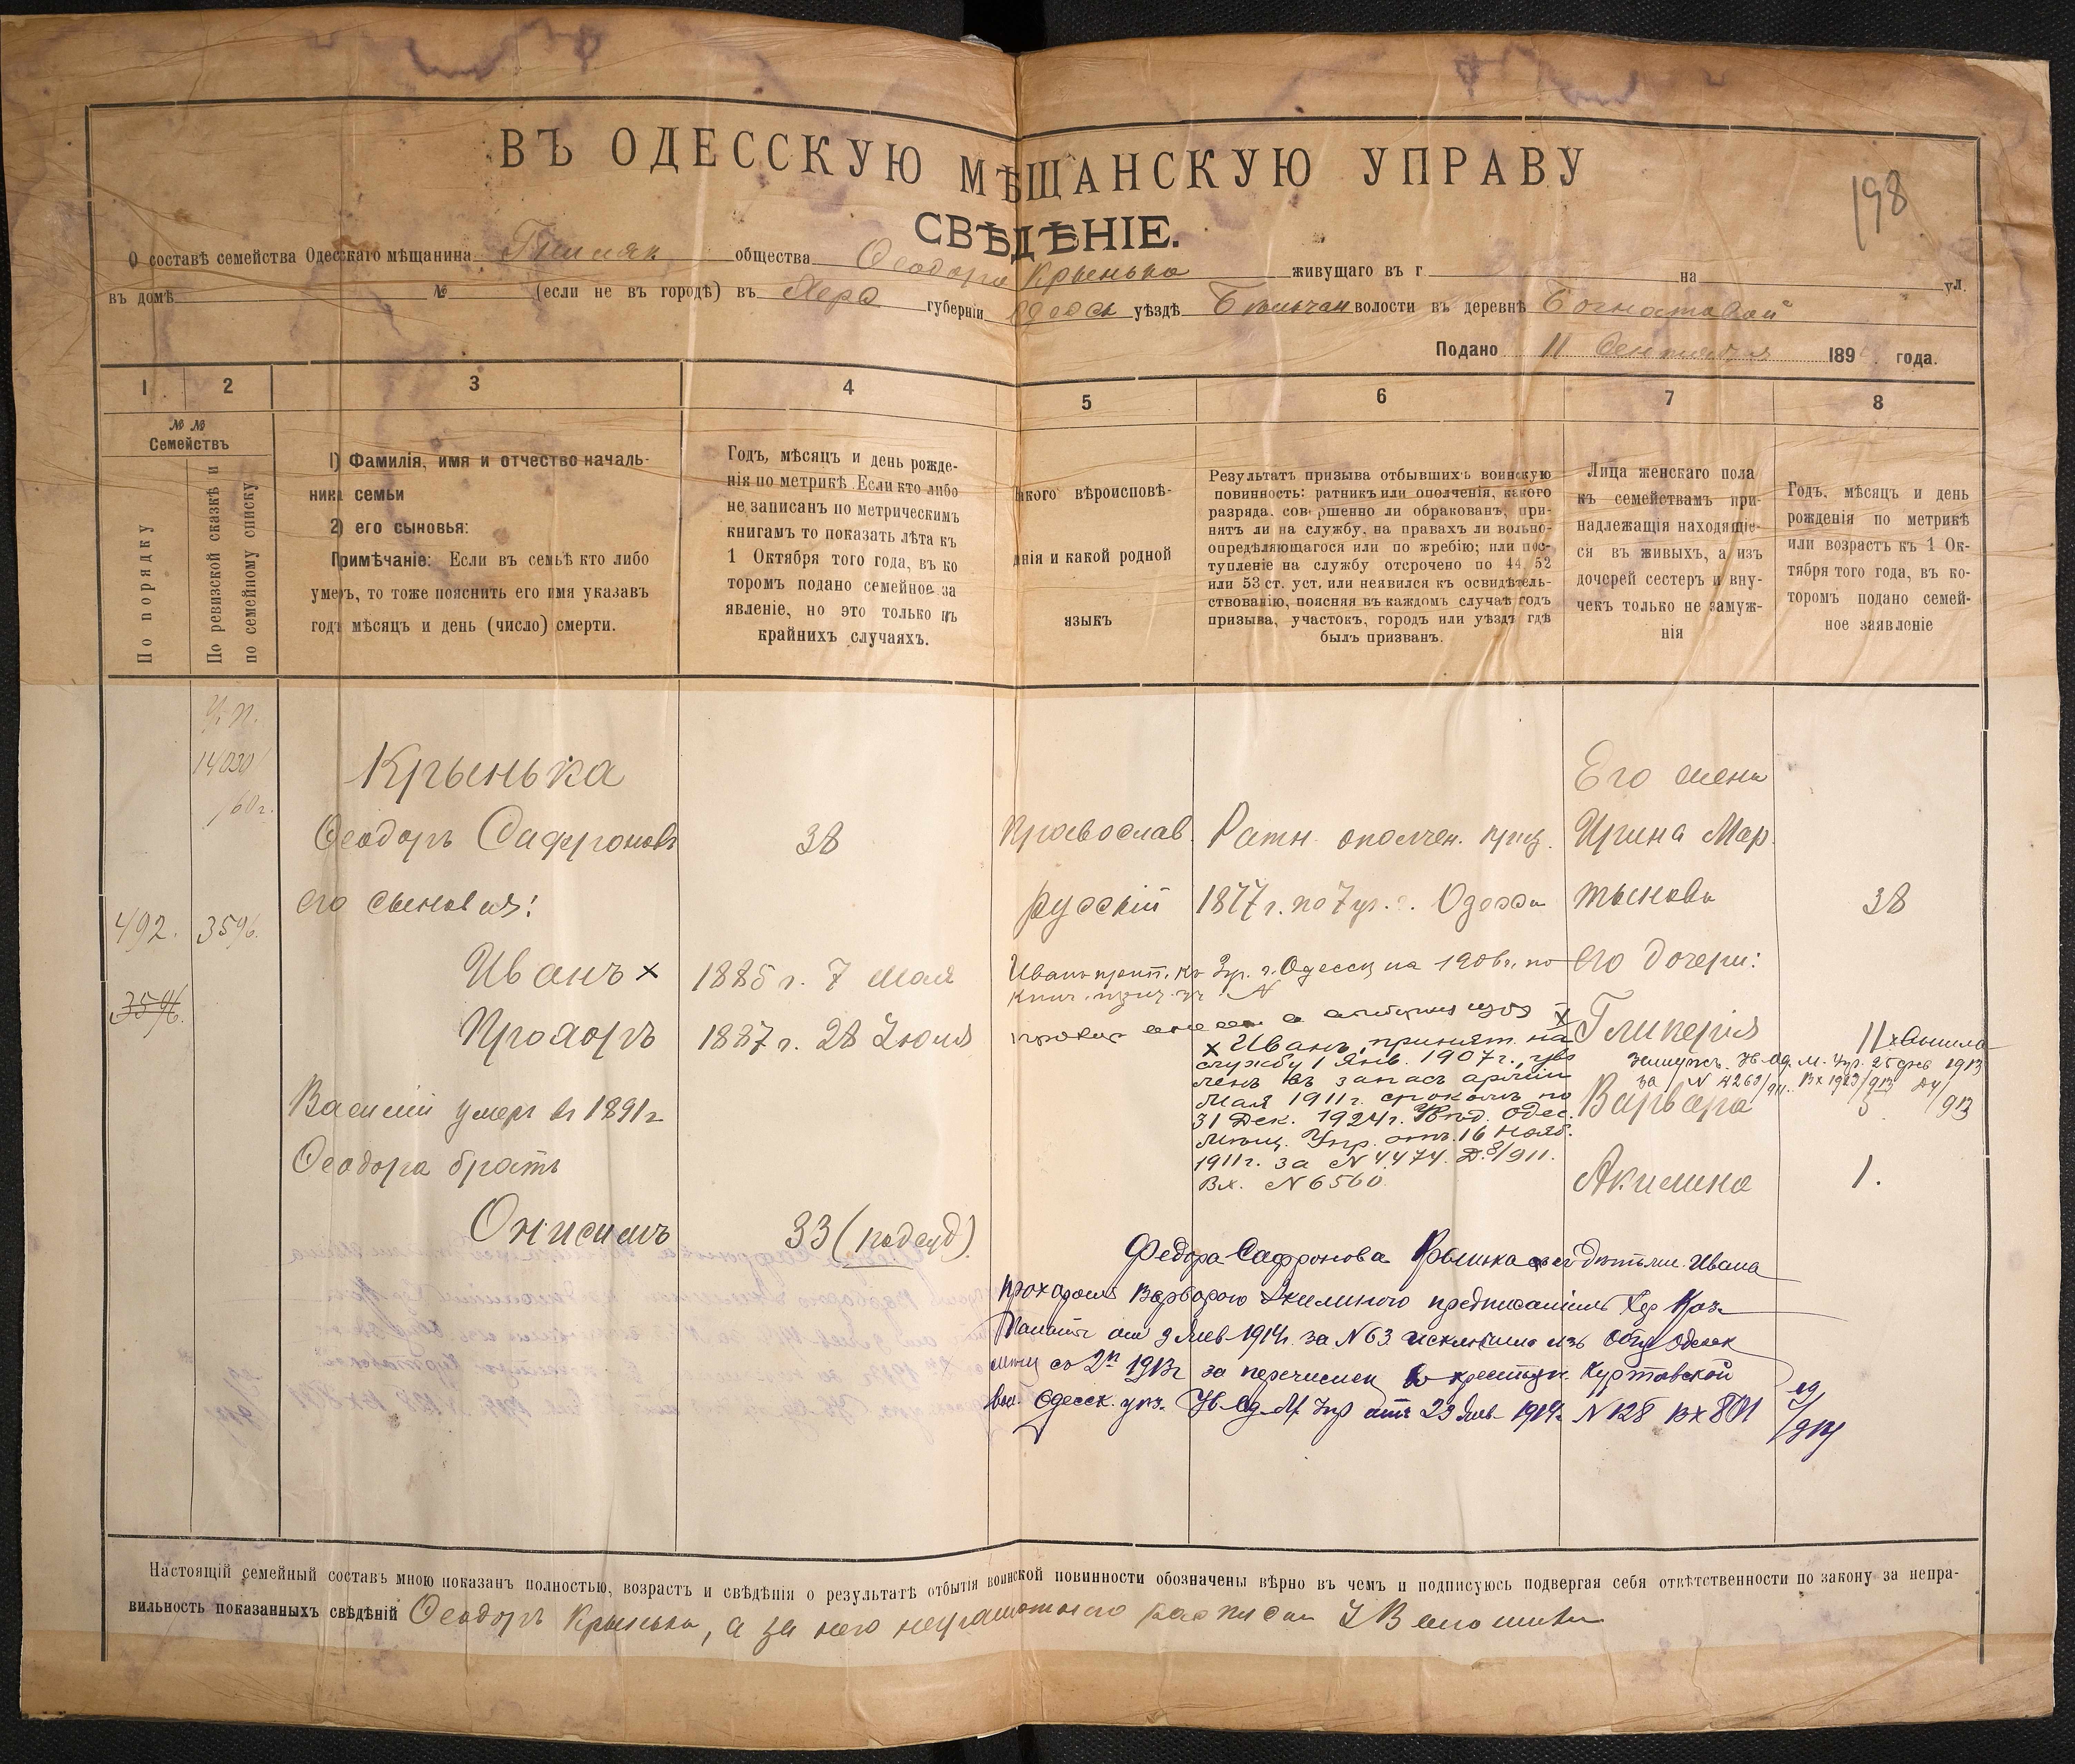 ВЪ ОДЕССКУЮ МѢЩАНСКУЮ УПРАВУ
198
СВѢДѢНІЕ.
О составѣ семейства Одесскаго мѣщанина общества Ѳеодора Крынька живущаго въ г. на ул.
въ домѣ № (если не въ городѣ) въ Херс губерніи Одесск уѣздѣ волости въ деревнѣ
Подано 11 Сентября 189 года.
1 2 3 4 5 6 7 8
№ №
Семействъ
По порядку
По ревизской сказкѣ и
по семейному списку
1) Фамилія, имя и отчество началь-
ника семьи
2) его сыновья:
Примѣчаніе: Если въ семьѣ кто либо
умеръ, то тоже пояснить его имя указавъ
годъ мѣсяцъ и день (число) смерти.
Годъ, мѣсяцъ и день рожде-
нія по метрикѣ Если кто либо
не записанъ по метрическимъ
книгамъ то показать лѣта къ
1 Октября того года, въ ко
торомъ подано семейное за
явленіе, но это только въ
крайнихъ случаяхъ.
акого вѣроисповѣ-
днія и какой родной
языкъ
Результатъ призыва отбывшихъ воинскую
повинность: ратникъ или ополченія, какого
разряда, совершенно ли обракованъ, при-
нятъ ли на службу, на правахъ ли вольно-
опредѣляющагося или по жребію; или пос-
тупленіе на службу отсрочено по 44, 52
или 53 ст. уст. или неявился къ освидѣтель-
ствованію, поясняя въ каждомъ случаѣ годъ
призыва, участокъ, городъ или уѣздъ гдѣ
былъ призванъ.
Лица женскаго пола
къ семействамъ при-
надлежащія находящіе-
ся въ живыхъ, а изъ
дочерей сестеръ и вну-
чекъ только не замуж-
нія
Годъ, мѣсяцъ и день
рожденія по метрикѣ
или возрастъ къ 1 Ок-
тября того года, въ ко-
торомъ подано семей-
ное заявленіе
Крынька
Его жена
Ѳеодоръ Сафроновъ 38 Православ. Ратн. ополчен. Ирина Мар
его сыновья: русскій 1877 г. по 7 уч. г. Одессы тынова 38
492. 3596.
Иванъ × 1885 г. 7 Мая его дочери:
Иванъ къ г. Одессы на 1906 г. по
3596.
Прохоръ 1887 г. 28 Іюля Гликерія 11 × вышла
замужъ. Ув. Од. М. Упр. 1913
за N 4260/911. Вх 1923/913
× Иванъ принят. на
службу 1 Янв. 1907 г., уво
ленъ въ запасъ арміи
Мая 1911 г. срокомъ по
31 Дек. 1924 г. Увѣд. Одес.
Мѣщ. Упр. отъ 16 Нояб.
1911 г. за N 4474. Д. 8/911.
Вх. N 6560
Василій умеръ въ 1891 г Варвара 5
Ѳеодора братъ
Акилина 1.
Онисимъ 33 (подсуд).
Федора Сафронова Крынька съ дѣтьми Ивана
Прохоромъ Варварою Акилиною предписаніемъ Хер Каз
Палаты от 9 Янв 1914 г. за N 63 исключить изъ Общ Одесск
мѣщ съ 2 п 1913 г за перечислен въ крестьян Куртовской
вол. Одесск. уез. Ув. Од. М. Упр отъ 23 Янв 1914 г N 128
Настоящій семейный составъ мною показанъ полностью, возрастъ и свѣдѣнія о результатѣ отбытія воинской повинности обозначены вѣрно въ чемъ и подписуюсь подвергая себя отвѣтственности по закону за непра-
вильность показанныхъ свѣдѣній Ѳеодоръ Крынька, а за него неграмотнаго росписал